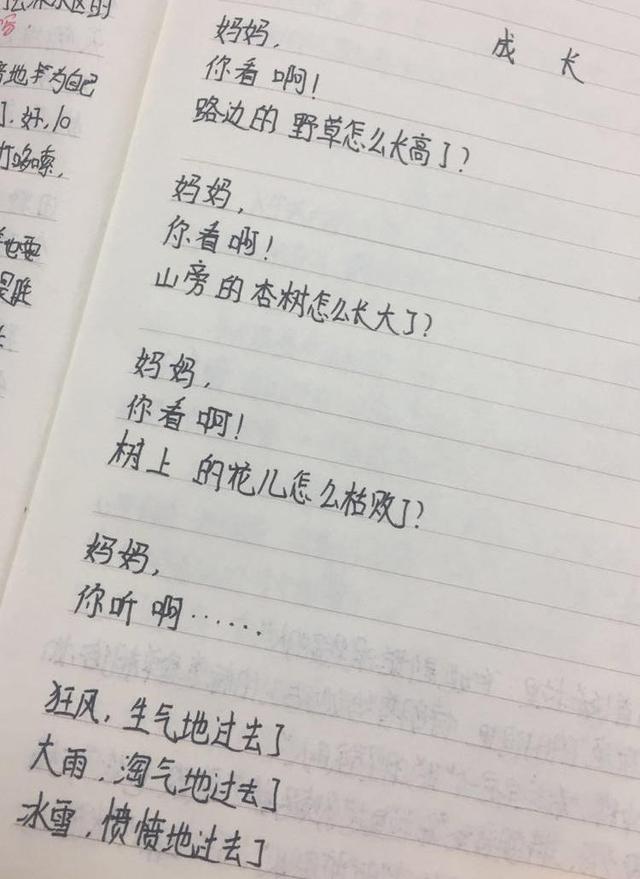 成 长
妈妈,
你看啊!
路边的野草怎么长高了?
妈妈,
你看啊!
山旁的杏树怎么长大了?
妈妈,
你看啊!
树上的花儿怎么枯败了?
妈妈,
你听啊……
狂风,生气地过去了
大雨,淘气地过去了
冰雪,愤愤地过去了